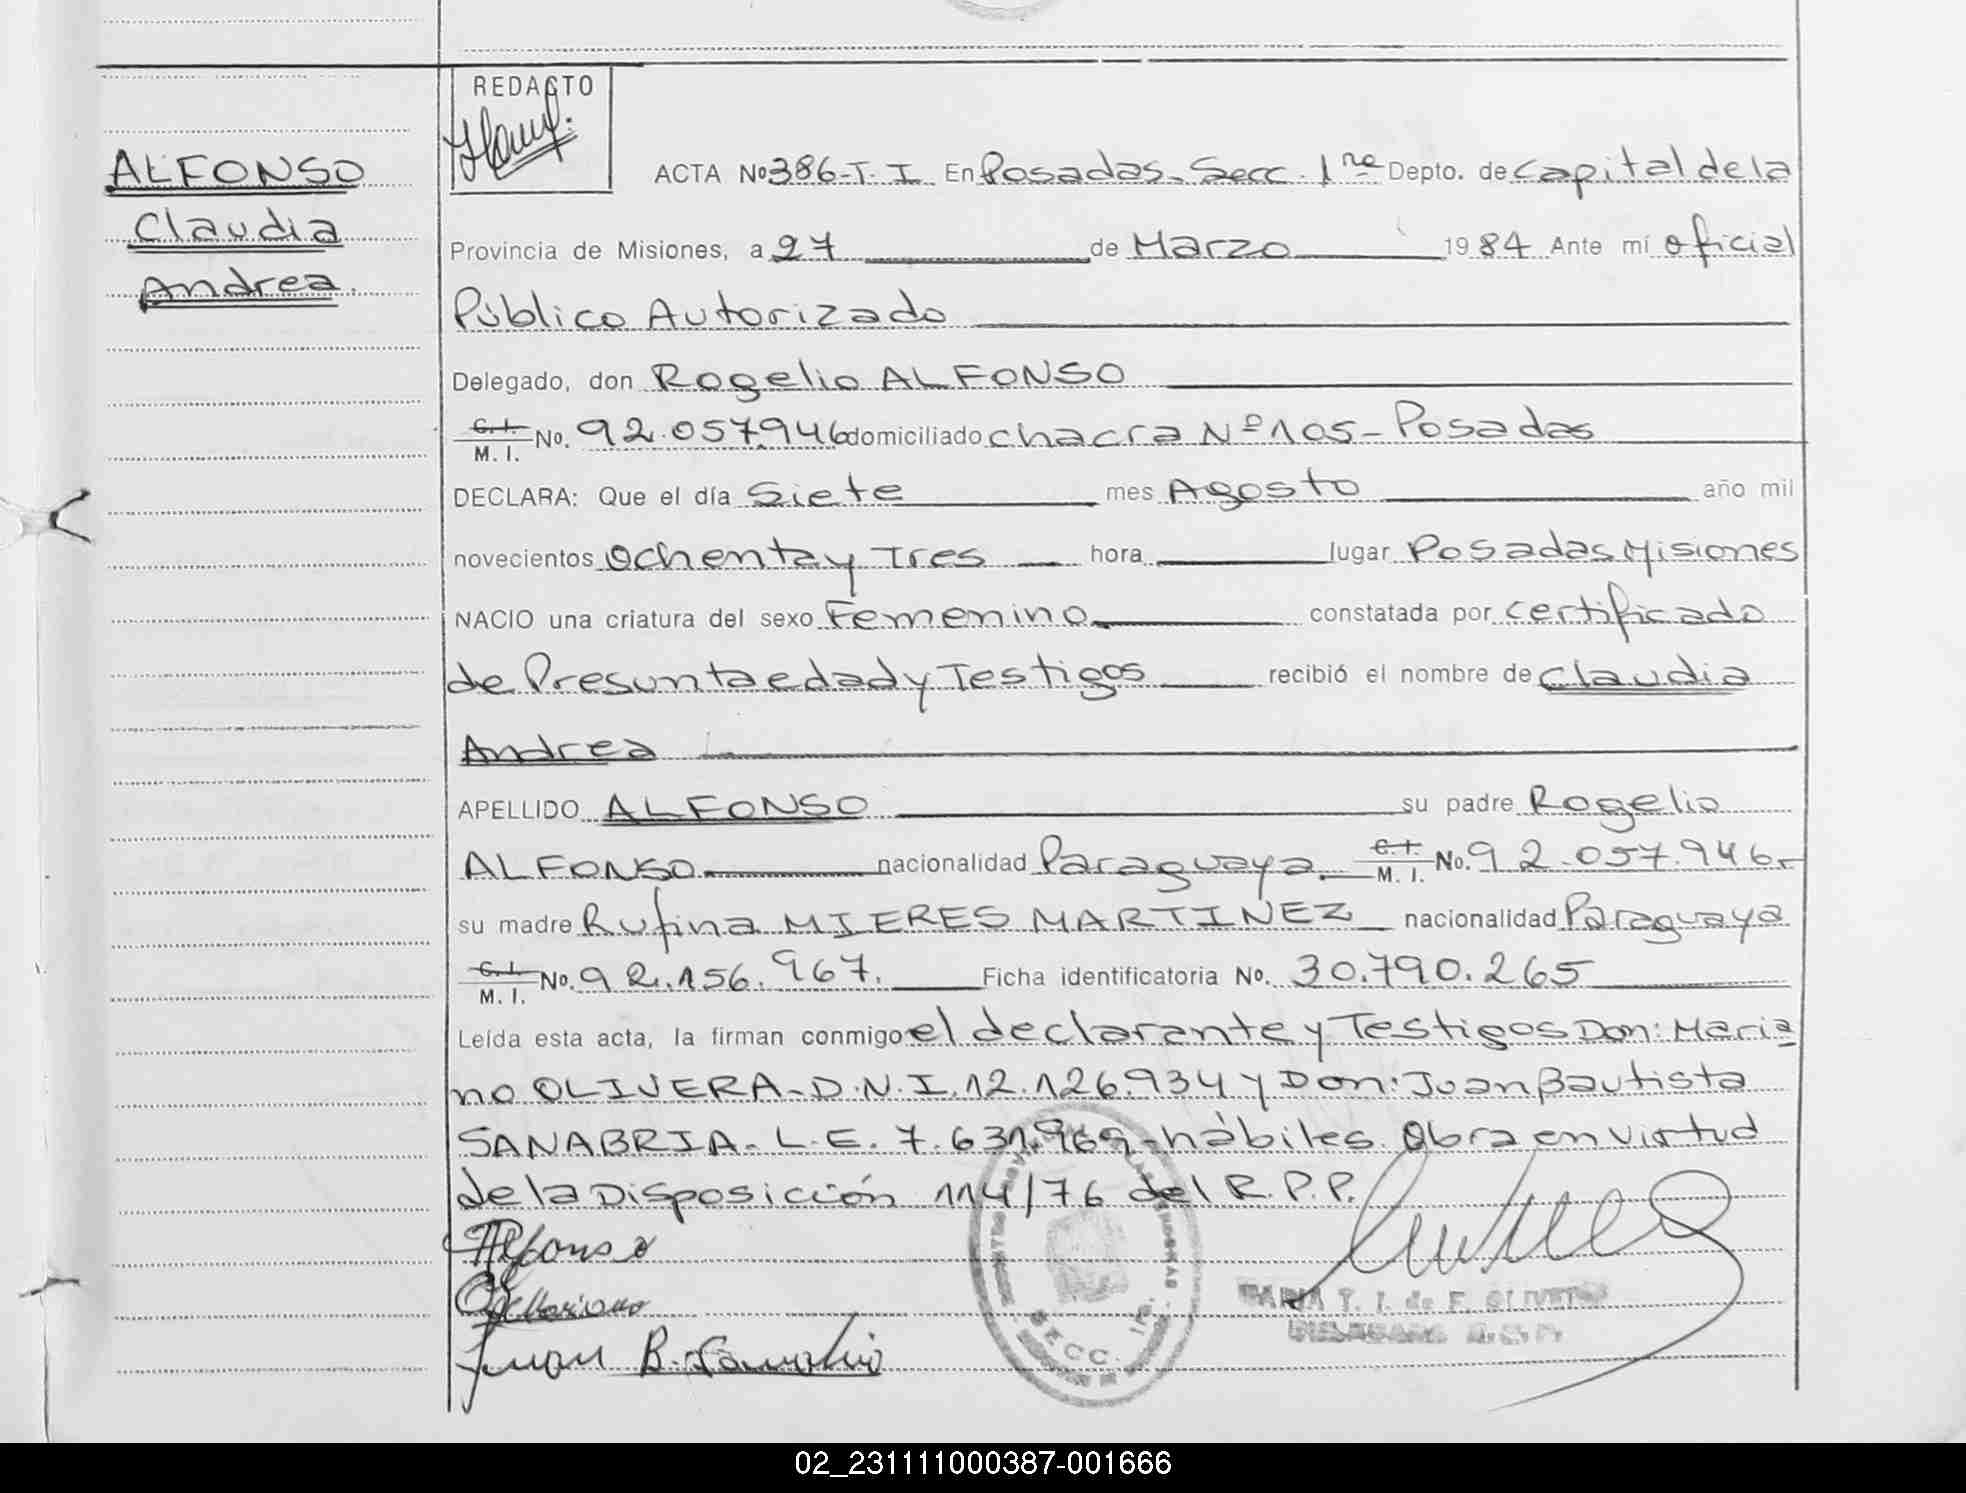 ALFONSO
Claudia
Andrea.
REDACTO
ACTA No 386-T. I En Posadas. Secc. 1ra Depto. de Capital de la
Provincia de Misiones, a 27 de Marzo 1984 Ante mí oficial
Público Autorizado
Delegado, don Rogelio ALFONSO
C.I.
M. I. No. 92.057.946 domiciliado chacra Nº 105-Posadas
DECLARA: Que el día Siete mes Agosto año mil
novecientos Ochenta y Tres hora lugar Posadas Misiones
NACIO una criatura del sexo Femenino constatada por certificado
de Presunta edad y Testigos recibió el nombre de Claudia
Andrea
APELLIDO ALFONSO su padre Rogelio
ALFONSO nacionalidad Paraguaya. C.I.
M. I. No. 92.057.946.-
su madre Rufina MIERES MARTINEZ nacionalidad Paraguaya
C.I.
M. I. No. 92.156.967. Ficha identificatoria No. 30.790.265
Leída esta acta, la firman conmigo el declarante y Testigos Don: Maria
no OLIVERA-D.N.I. 12.126.934 y Don: Juan Bautista
SANABRIA. L.E. 7.631.969-hábiles. Obra en virtud
de la Disposición 114/76 del R.P.P.
Alfonso
Mariano
Juan B. Sanabria
SECC. 1ra.
MARIA T. I. de F. OLIVETO
DELEGADA R.C.P.
02_231111000387-001666